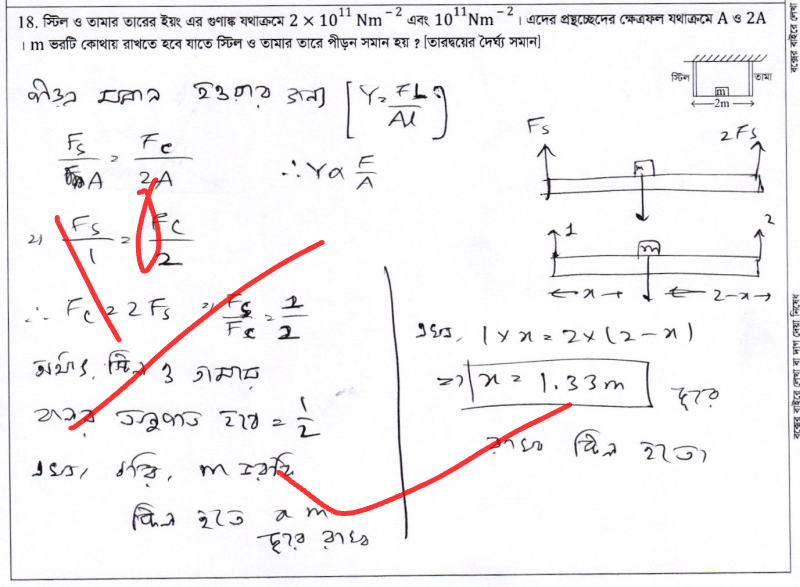 18. স্টিল ও তামার তারের ইয়ং এর গুণাঙ্ক যথাক্রমে 2 × 10¹¹ Nm⁻² এবং 10¹¹Nm⁻² । এদের প্রস্থচ্ছেদের ক্ষেত্রফল যথাক্রমে A ও 2A
। m ভরটি কোথায় রাখতে হবে যাতে স্টিল ও তামার তারে পীড়ন সমান হয় ? [তারদ্বয়ের দৈর্ঘ্য সমান]
স্টিল তামা
m
2m
পীড়ন সমান হওয়ার জন্য [Y = FL/Al]
F_s/A = F_c/2A
∴ Y ∝ F/A
⇒ F_s/1 = F_c/2
∴ F_c = 2F_s ⇒ F_s/F_c = 1/2
অর্থাৎ, স্টিল ও তামার
বলের অনুপাত হবে = 1/2
এখন, ধরি, m ভরটি
স্টিল হতে x m
দূরে রাখব
F_s 2F_s
m
1 2
m
x 2-x
এখন, 1 × x = 2 × (2-x)
⇒ x = 1.33m দূরে
রাখব স্টিল হতে।
বক্সের বাইরে লেখা
বক্সের বাইরে লেখা বা দাগ দেয়া নিষেধ